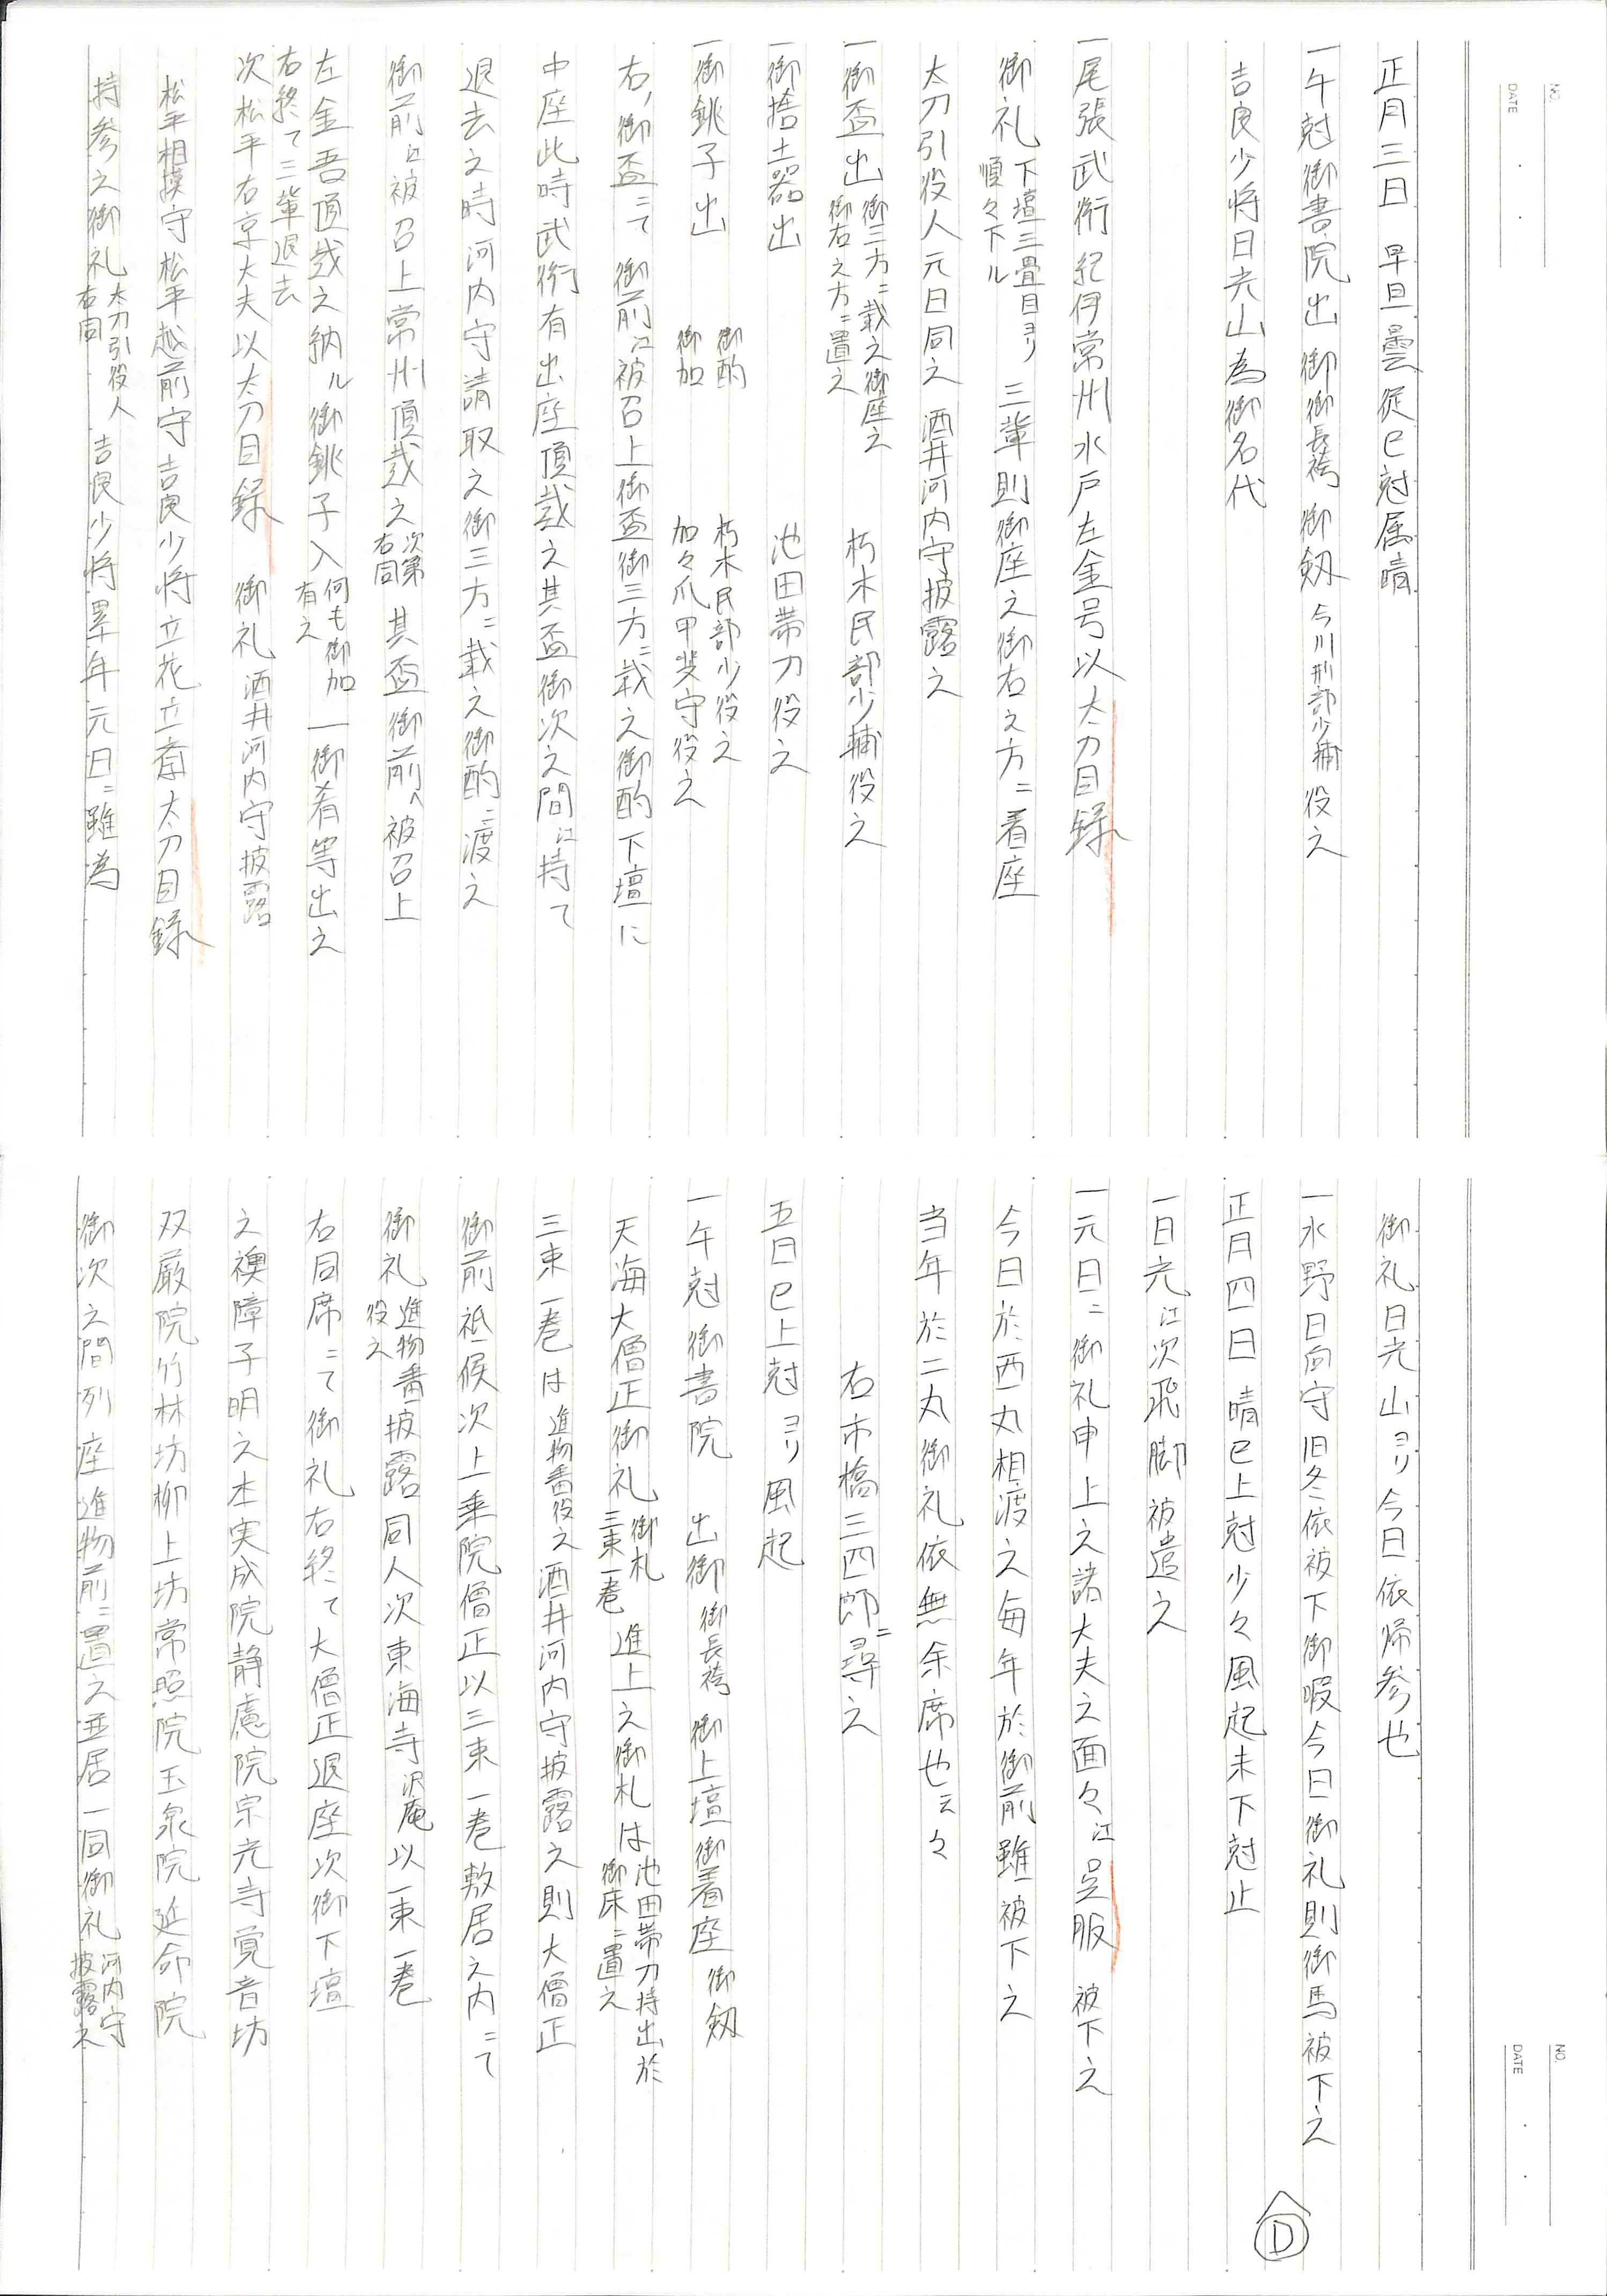 正月三日 早旦曇従巳尅属晴
一午尅御書院出御御長袴御釼今川刑部少輔役之
吉良少将日光山為御名代
一尾張武衛紀伊常州水戸左金吾以太刀目録
御礼下壇三畳目ヨリ順々下ル三輩則御座之御右之方ニ着座
太刀引役人元日同之 酒井河内守披露之
一御盃出御三方ニ載之御座之御右之方ニ置之 朽木民部少輔役之
一御捨土器出 池田帯刀役之
一御銚子出 御酌 朽木民部少役之
御加 加々爪甲斐守役之
右ノ御盃ニて御前江被召上御盃御三方ニ載之御酌下壇に
中座此時武衛有出座頂戴之其盃御次之間江持て
退去之時河内守請取之御三方ニ載之御酌ニ渡之
御前江被召上常州頂戴之次第右同其盃御前へ被召上
左金吾頂戴之納ル御銚子入何も御加有之 一御肴等出之
右終て三輩退去
次松平右京大夫以太刀目録 御礼酒井河内守披露
松平相模守松平越前守吉良少将立花立斎太刀目録
持参之御礼太刀引役人右同 吉良少将累年元日ニ雖為
御礼日光山ヨリ今日依帰参也
一水野日向守旧冬依被下御暇今日御礼則御馬被下之
正月四日 晴巳上尅少々風起未下尅止
一日光江次飛脚被遣之
一元日ニ御礼申上之諸大夫之面々江呉服被下之
今日於西丸相渡之毎年於御前雖被下之
当年於二丸御礼依無余席也云々
右市橋三四郎ニ尋之
五日巳上尅ヨリ風起
一午尅御書院 出御御長袴御上壇御着座御釼
天海大僧正御礼御札三束一巻 進上之御札は池田帯刀持出於御床ニ置之
三束一巻は進物番役之酒井河内守披露之則大僧正
御前祗候次上乗院僧正以三束一巻敷居之内ニて
御礼進物番役之披露同人次東海寺沢庵以一束一巻
右同席ニて御礼右終て大僧正退座次御下壇
之襖障子明之本実成院静慮院宗光寺覚音坊
双厳院竹林坊柳上坊常照院玉泉院延命院
御次之間列座進物前ニ置之並居一同御礼河内守披露之
D
NO.
DATE
NO.
DATE